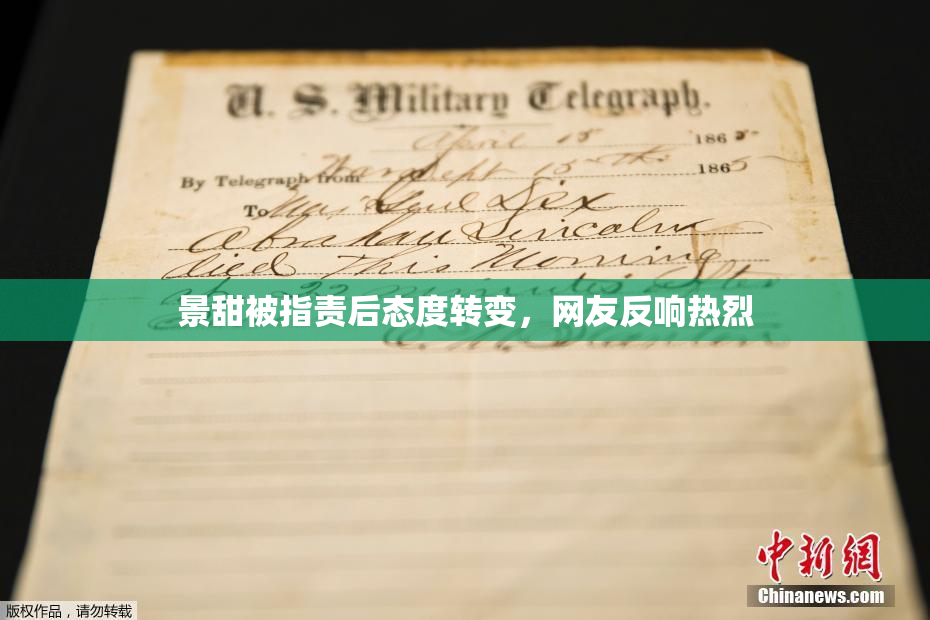 U. S. Military Telegraph.
April 15 1865
By Telegraph from War Dept 15th 1865
To Maj Genl Dix
Abraham Lincoln
died This Morning
22 minutes after
景甜被指责后态度转变，网友反响热烈
E. M. Stanton
中新网
Chinanews.com
版权作品，请勿转载